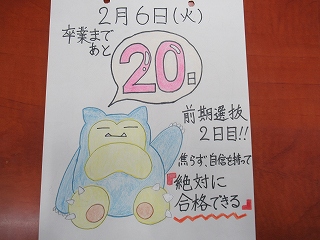 2月6日(火)
卒業まで
あと
20日
前期選抜
2日目!!
焦らず、自信を持って
『絶対に
合格できる』